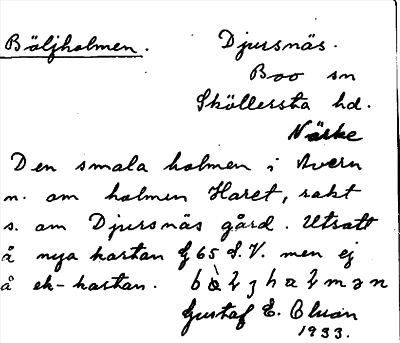 Bäljholmen.
Djursnäs.
Boo sn
Sköllersta hd.
Närke
Den smala holmen i Avern
n. om holmen Haret, rakt
s. om Djursnäs gård. Utsatt
å nya kartan G 65 S.V. men ej
å ek-kartan.
Gustaf E. Olson
1933.